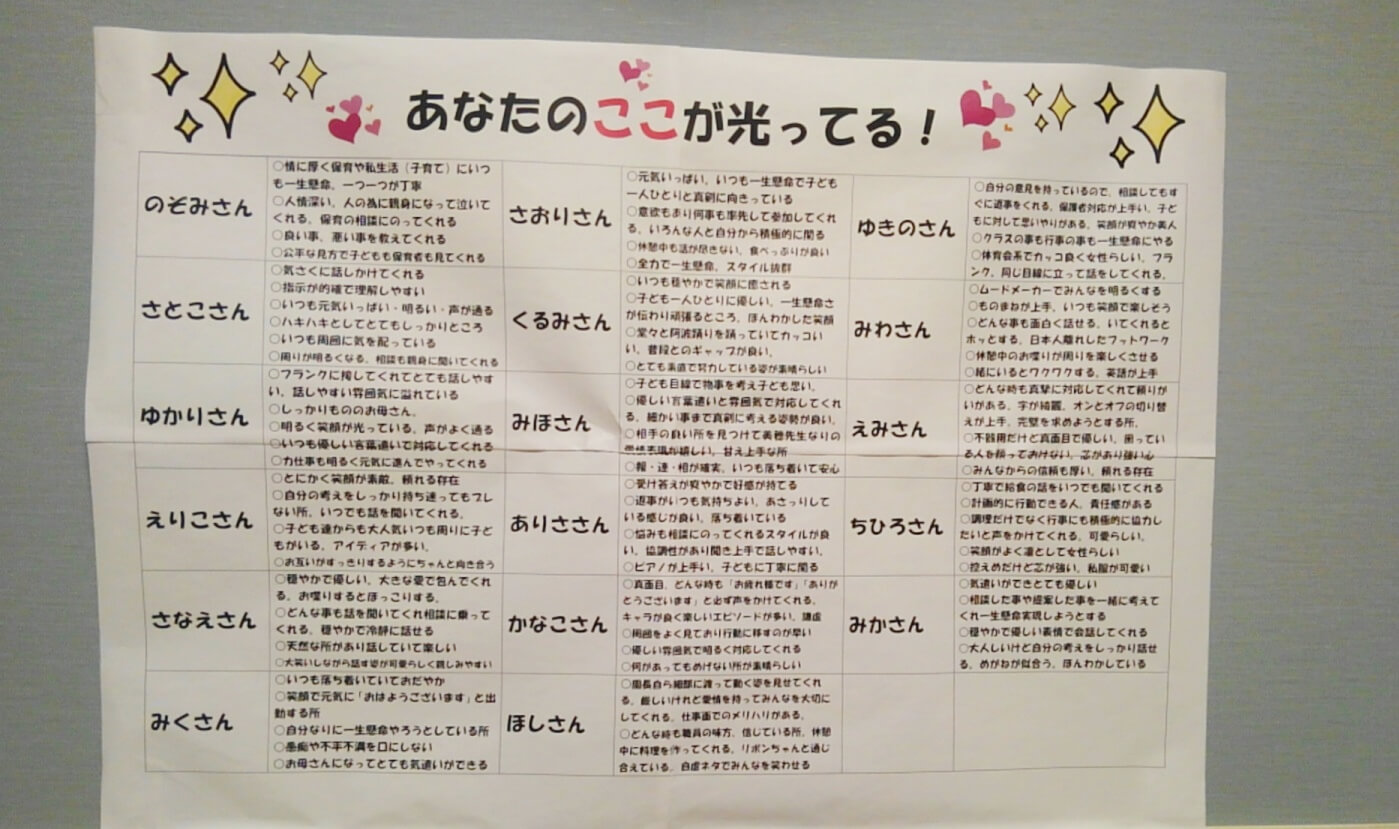 あなたのここが光ってる！
のぞみさん
○情に厚く保育や私生活（子育て）にいつ
も一生懸命。一つ一つが丁寧
○人情深い。人の為に親身になって泣いて
くれる。保育の相談にのってくれる
○良い事、悪い事を教えてくれる
○公平な見方で子どもも保育者も見てくれる
さおりさん
○元気いっぱい。いつも一生懸命で子ども
一人ひとりと真剣に向きっている
○意欲もあり何事も率先して参加してくれ
る。いろんな人と自分から積極的に関る
○休憩中も話が尽きない。食べっぷりが良い
○全力で一生懸命。スタイル抜群
ゆきのさん
○自分の意見を持っているので、相談してもす
ぐに返事をくれる。保護者対応が上手い。子ど
もに対して思いやりがある。笑顔が爽やか美人
○クラスの事も行事の事も一生懸命にやる
○体育会系でカッコ良く女性らしい。フラ
ンク。同じ目線に立って話をしてくれる。
さとこさん
○気さくに話しかけてくれる
○指示が的確で理解しやすい
○いつも元気いっぱい・明るい・声が通る
○ハキハキとしてとてもしっかりところ
○いつも周囲に気を配っている
○周りが明るくなる。相談も親身に聞いてくれる
くるみさん
○いつも穏やかで笑顔に癒される
○子ども一人ひとりに優しい。一生懸命さ
が伝わり頑張るところ。ほんわかした笑顔
○堂々と阿波踊りを踊っていてカッコい
い。普段とのギャップが良い。
○とても素直で努力している姿が素晴らしい
みわさん
○ムードメーカーでみんなを明るくする
○ものまねが上手。いつも笑顔で楽しそう
○どんな事も面白く話せる。いてくれると
ホッとする。日本人離れしたフットワーク
○休憩中のお喋りが周りを楽しくさせる
○緒にいるとワクワクする。英語が上手
ゆかりさん
○フランクに接してくれてとても話しやす
い。話しやすい雰囲気に溢れている
○しっかりもののお母さん。
○明るく笑顔が光っている。声がよく通る
○いつも優しい言葉遣いで対応してくれる
○力仕事も明るく元気に進んでやってくれる
みほさん
○子ども目線で物事を考え子ども思い。
○優しい言葉遣いと雰囲気で対応してくれ
る。細かい事まで真剣に考える姿勢が良い。
○相手の良い所を見つけて美穂先生なりの
愛情表現が嬉しい。甘え上手な所
○報・連・相が確実。いつも落ち着いて安心
えみさん
○どんな時も真摯に対応してくれて頼りが
いがある。字が綺麗。オンとオフの切り替
えが上手。完璧を求めようとする所。
○不器用だけど真面目で優しい。困ってい
る人を頼っておけない。芯があり強い心
○みんなからの信頼も厚い。頼れる存在
えりこさん
○とにかく笑顔が素敵。頼れる存在
○自分の考えをしっかり持ち迷ってもブレ
ない所。いつでも話を聞いてくれる。
○子ども達からも大人気いつも周りに子ど
もがいる。アイディアが多い。
○お互いがすっきりするようにちゃんと向き合う
ありささん
○受け答えが爽やかで好感が持てる
○返事がいつも気持ちよい。あさっりして
いる感じが良い。落ち着いている
○悩みも相談にのってくれるスタイルが良
い。協調性があり聞き上手で話しやすい。
○ピアノが上手い。子どもに丁寧に関る
ちひろさん
○丁寧で給食の話をいつでも聞いてくれる
○計画的に行動できる人。責任感がある
○調理だけでなく行事にも積極的に協力し
たいと声をかけてくれる。可愛らしい。
○笑顔がよく凛として女性らしい
○控えめだけど芯が強い。私服が可愛い
さなえさん
○穏やかで優しい。大きな愛で包んでくれ
る。お喋りするとほっこりする。
○どんな事も話を聞いてくれ相談に乗って
くれる。穏やかで冷静に話せる
○天然な所があり話していて楽しい
○大笑いしながら話す姿が可愛らしく親しみやすい
かなこさん
○真面目。どんな時も「お疲れ様です」「ありが
とうございます」と必ず声をかけてくれる。
キャラが良く楽しいエピソードが多い。謙虚
○周囲をよく見ており行動に移すのが早い
○優しい雰囲気で明るく対応してくれる
○何があってもめげない所が素晴らしい
みかさん
○気遣いができとても優しい
○相談した事や提案した事を一緒に考えて
くれ一生懸命実現しようとする
○穏やかで優しい表情で会話してくれる
○大人しいけど自分の考えをしっかり話せ
る。めがねが似合う。ほんわかしている
みくさん
○いつも落ち着いていておだやか
○笑顔で元気に「おはようございます」と出
勤する所
○自分なりに一生懸命やろうとしている所
○愚痴や不平不満を口にしない
○お母さんになってとても気遣いができる
ほしさん
○園長自ら細部に渡って動く姿を見せてくれ
る。厳しいけれど愛情を持ってみんなを大切に
してくれる。仕事面でのメリハリがある。
○どんな時も職員の味方。信じている所。休憩
中に料理を作ってくれる。リボンちゃんと通じ
合えている。自虐ネタでみんなを笑わせる